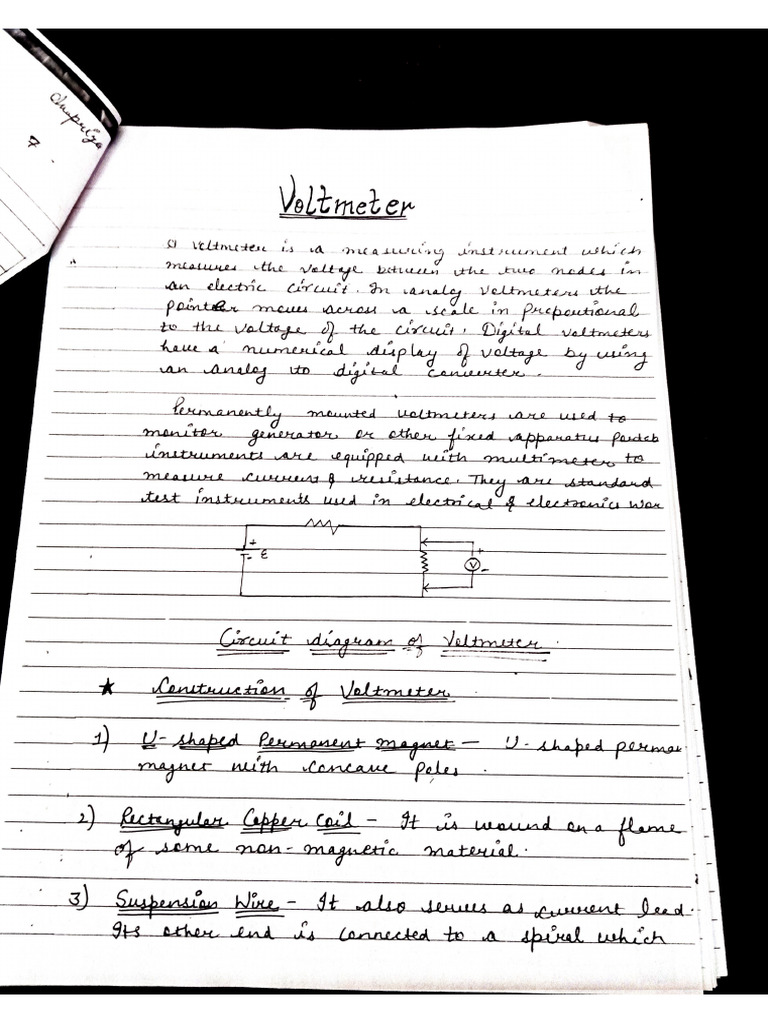 7
Voltmeter
A voltmeter is a measuring instrument which
measures the voltage between the two nodes in
an electric circuit. In analog voltmeters the
pointer moves across a scale in propoutional
to the voltage of the circuit. Digital voltmeters
have a numerical display of voltage by using
an analog to digital converter.
Permanently mounted voltmeters are used to
monitor generator or other fixed apparatus Portab
instruments are equipped with multimeter to
measure current & resistance. They are standard
test instruments used in electrical & electronics wor
+
- ε
+
V -
Circuit diagram of Voltmeter.
★ Construction of Voltmeter
1) U-shaped Permanent magnet - U-shaped perma
magnet with concave poles.
2) Rectangular Copper Coil - It is wound on a flame
of some non-magnetic material.
3) Suspension Wire - It also serves as current lead.
Its other end is connected to a spiral which